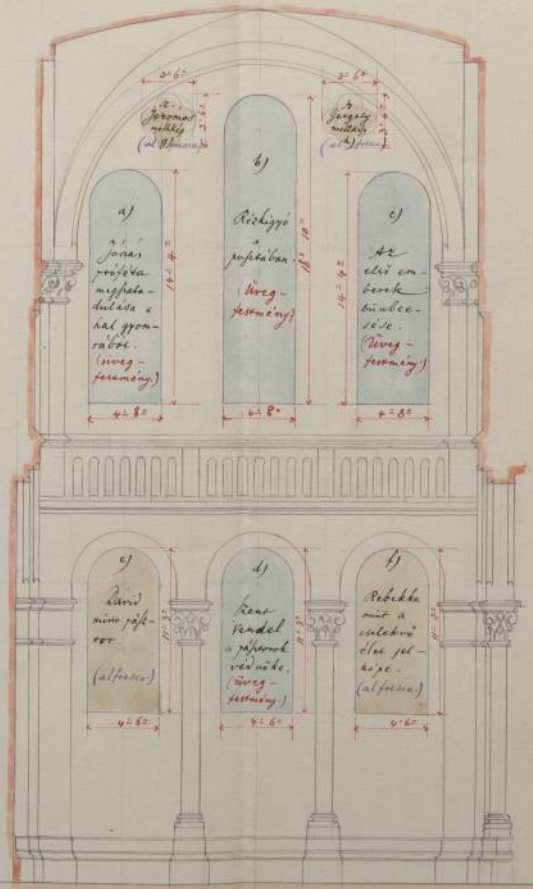 3' 6"
Sz.
Jeromos
mellkép
(al fresco.)
3' 6"
3' 6"
Sz.
Gergely
mellkép
(al fresco.)
a)
Jónás
próféta
megszaba-
dulása a
hal gyom-
rából.
(üveg-
festmény.)
14' 4"
4' 8"
b)
Rézkigyó
a
pusztában.
(üveg-
festmény.)
4' 8"
14' 4"
c)
Az
első em-
berek
bünbee-
sése.
(Üveg-
festmény.)
4' 8"
e)
Dávid
mint pász-
tor.
(al fresco.)
11' 3"
4' 6"
d)
Szent
Vendel
a pásztorok
védnöke.
(üveg-
festmény.)
11' 3"
4' 6"
f)
Rebekka
mint a
cselekvő
élet jel-
képe.
(al fresco.)
11' 3"
4' 6"